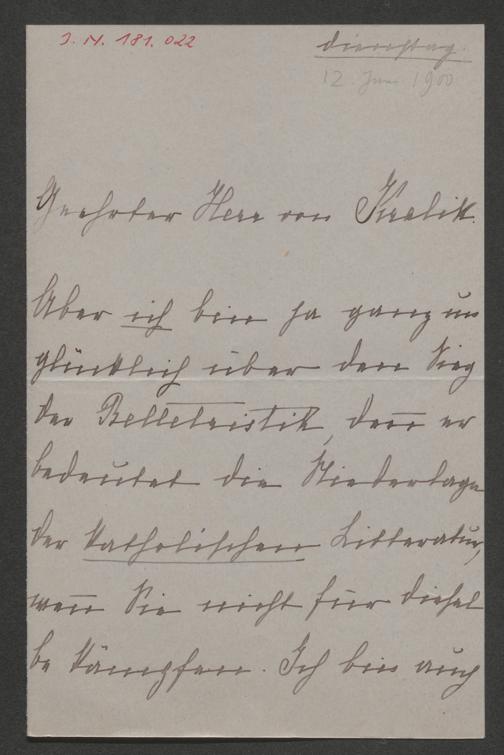 J. N. 181.022
Dienstag.
12. Jun 1900
Geehrter Herr von Kralik.
Aber ich bin ja ganz un
glücklich über den Sieg
der Belletristik, denn er
bedeutet die Niederlage
der katholischen Litteratur,
wenn Sie nicht für diesel
be kämpfen. Ich bin auch